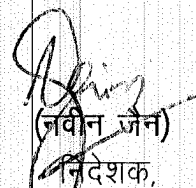 (नवीन जैन)
निदेशक,